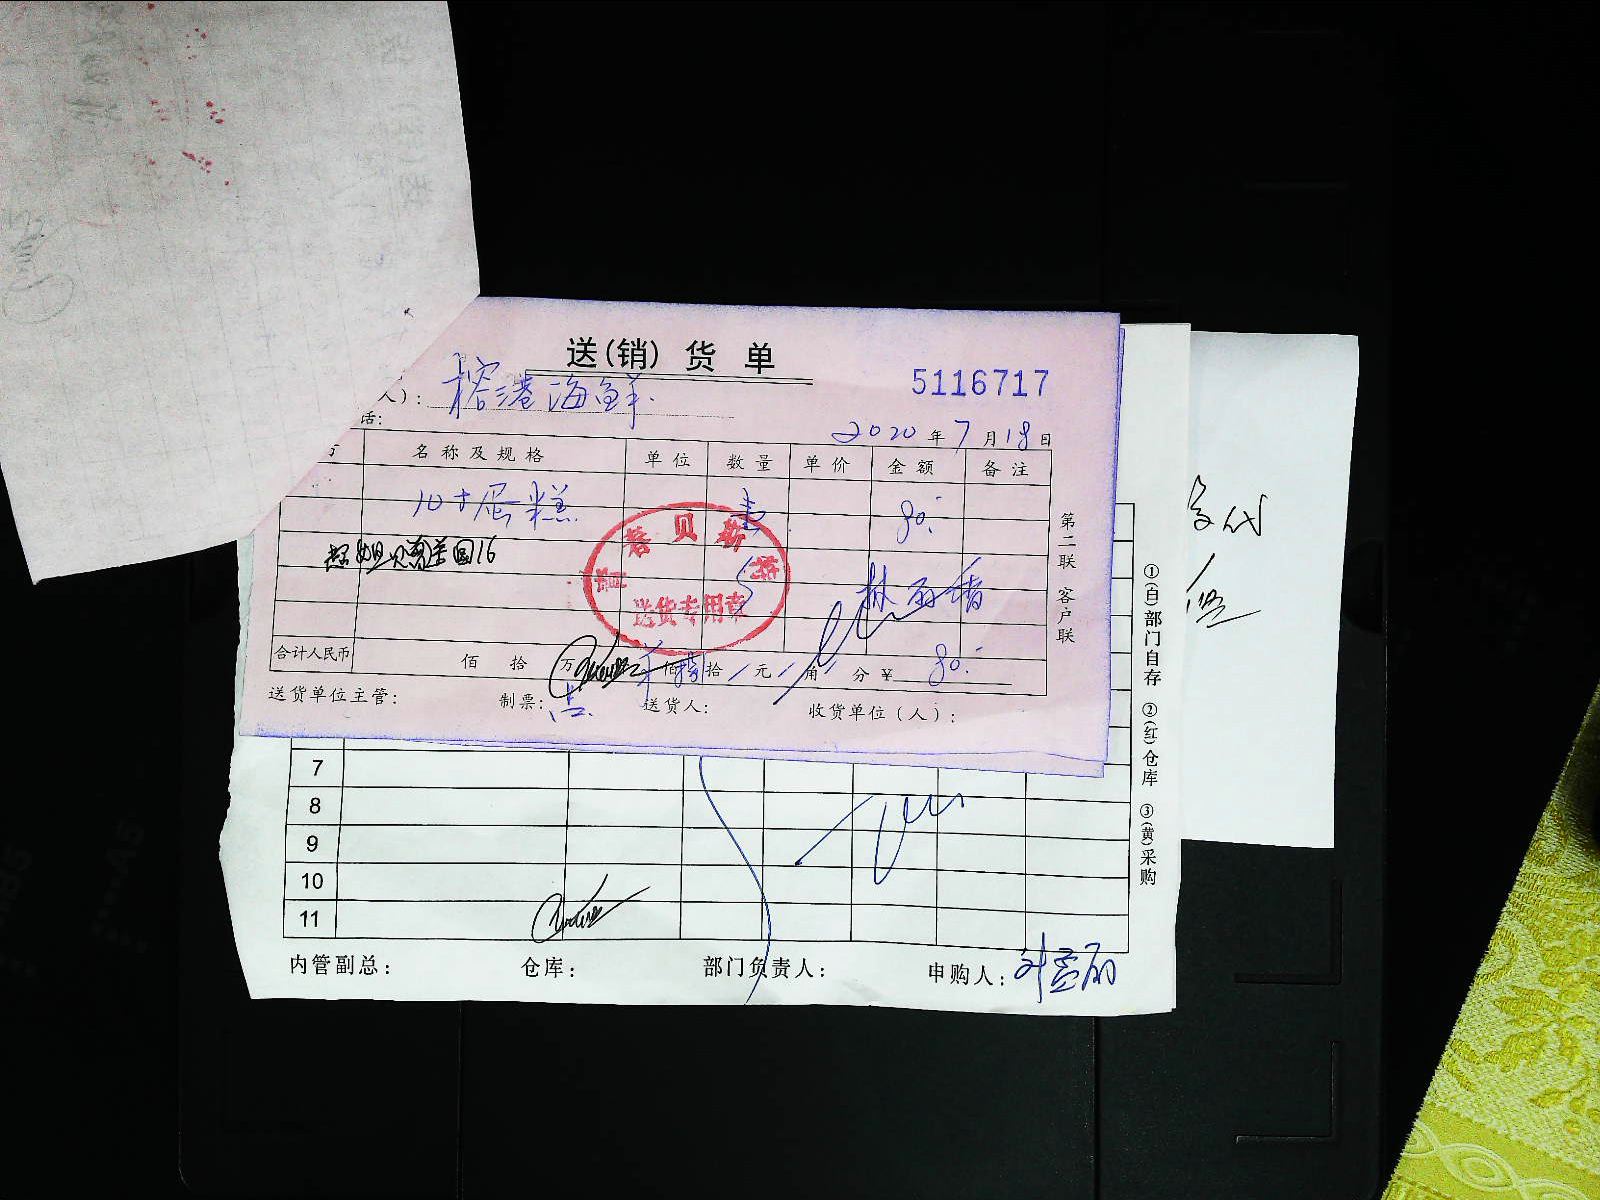 送(销)货单
5116717
人): 榕港海鲜.
话:
2020年7月18日
名称及规格 单位 数量 单价 金额 备注
10寸蛋糕 壹 80.
送货专用章
林
合计人民币 佰 拾 万 仟 佰 捌 拾 元 角 分 ¥ 80.
送货单位主管: 制票: 送货人: 收货单位(人):
第二联 客户联
7
8
9
10
11
内管副总: 仓库: 部门负责人: 申购人: 刘
①(白)部门自存 ②(红)仓库 ③(黄)采购